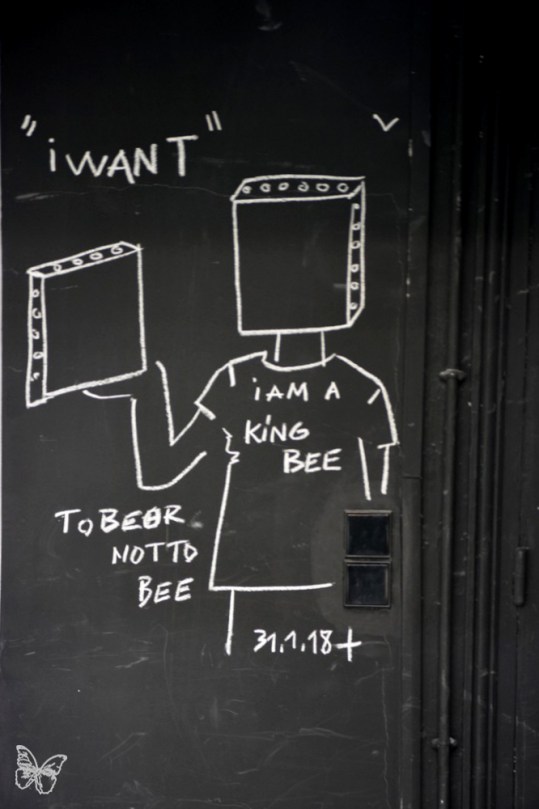 "i WANT"
i AM A
KiNG
BEE
TO BEOR
NOT TO
BEE
31.1.18+